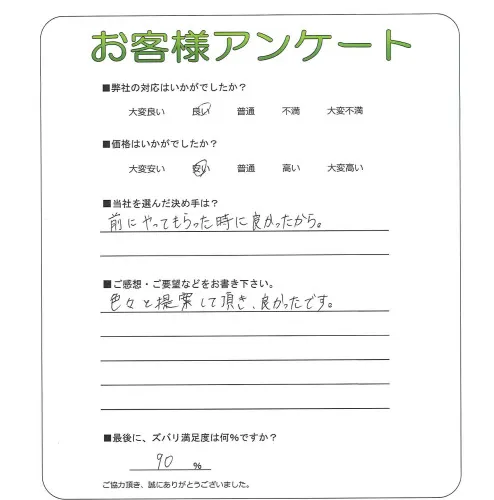 お客様アンケート
■弊社の対応はいかがでしたか？
大変良い 良い 普通 不満 大変不満
■価格はいかがでしたか？
大変安い 安い 普通 高い 大変高い
■当社を選んだ決め手は？
前にやってもらった時に良かったから。
■ご感想・ご要望などをお書き下さい。
色々と提案して頂き、良かったです。
■最後に、ズバリ満足度は何%ですか？
90 %
ご協力頂き、誠にありがとうございました。